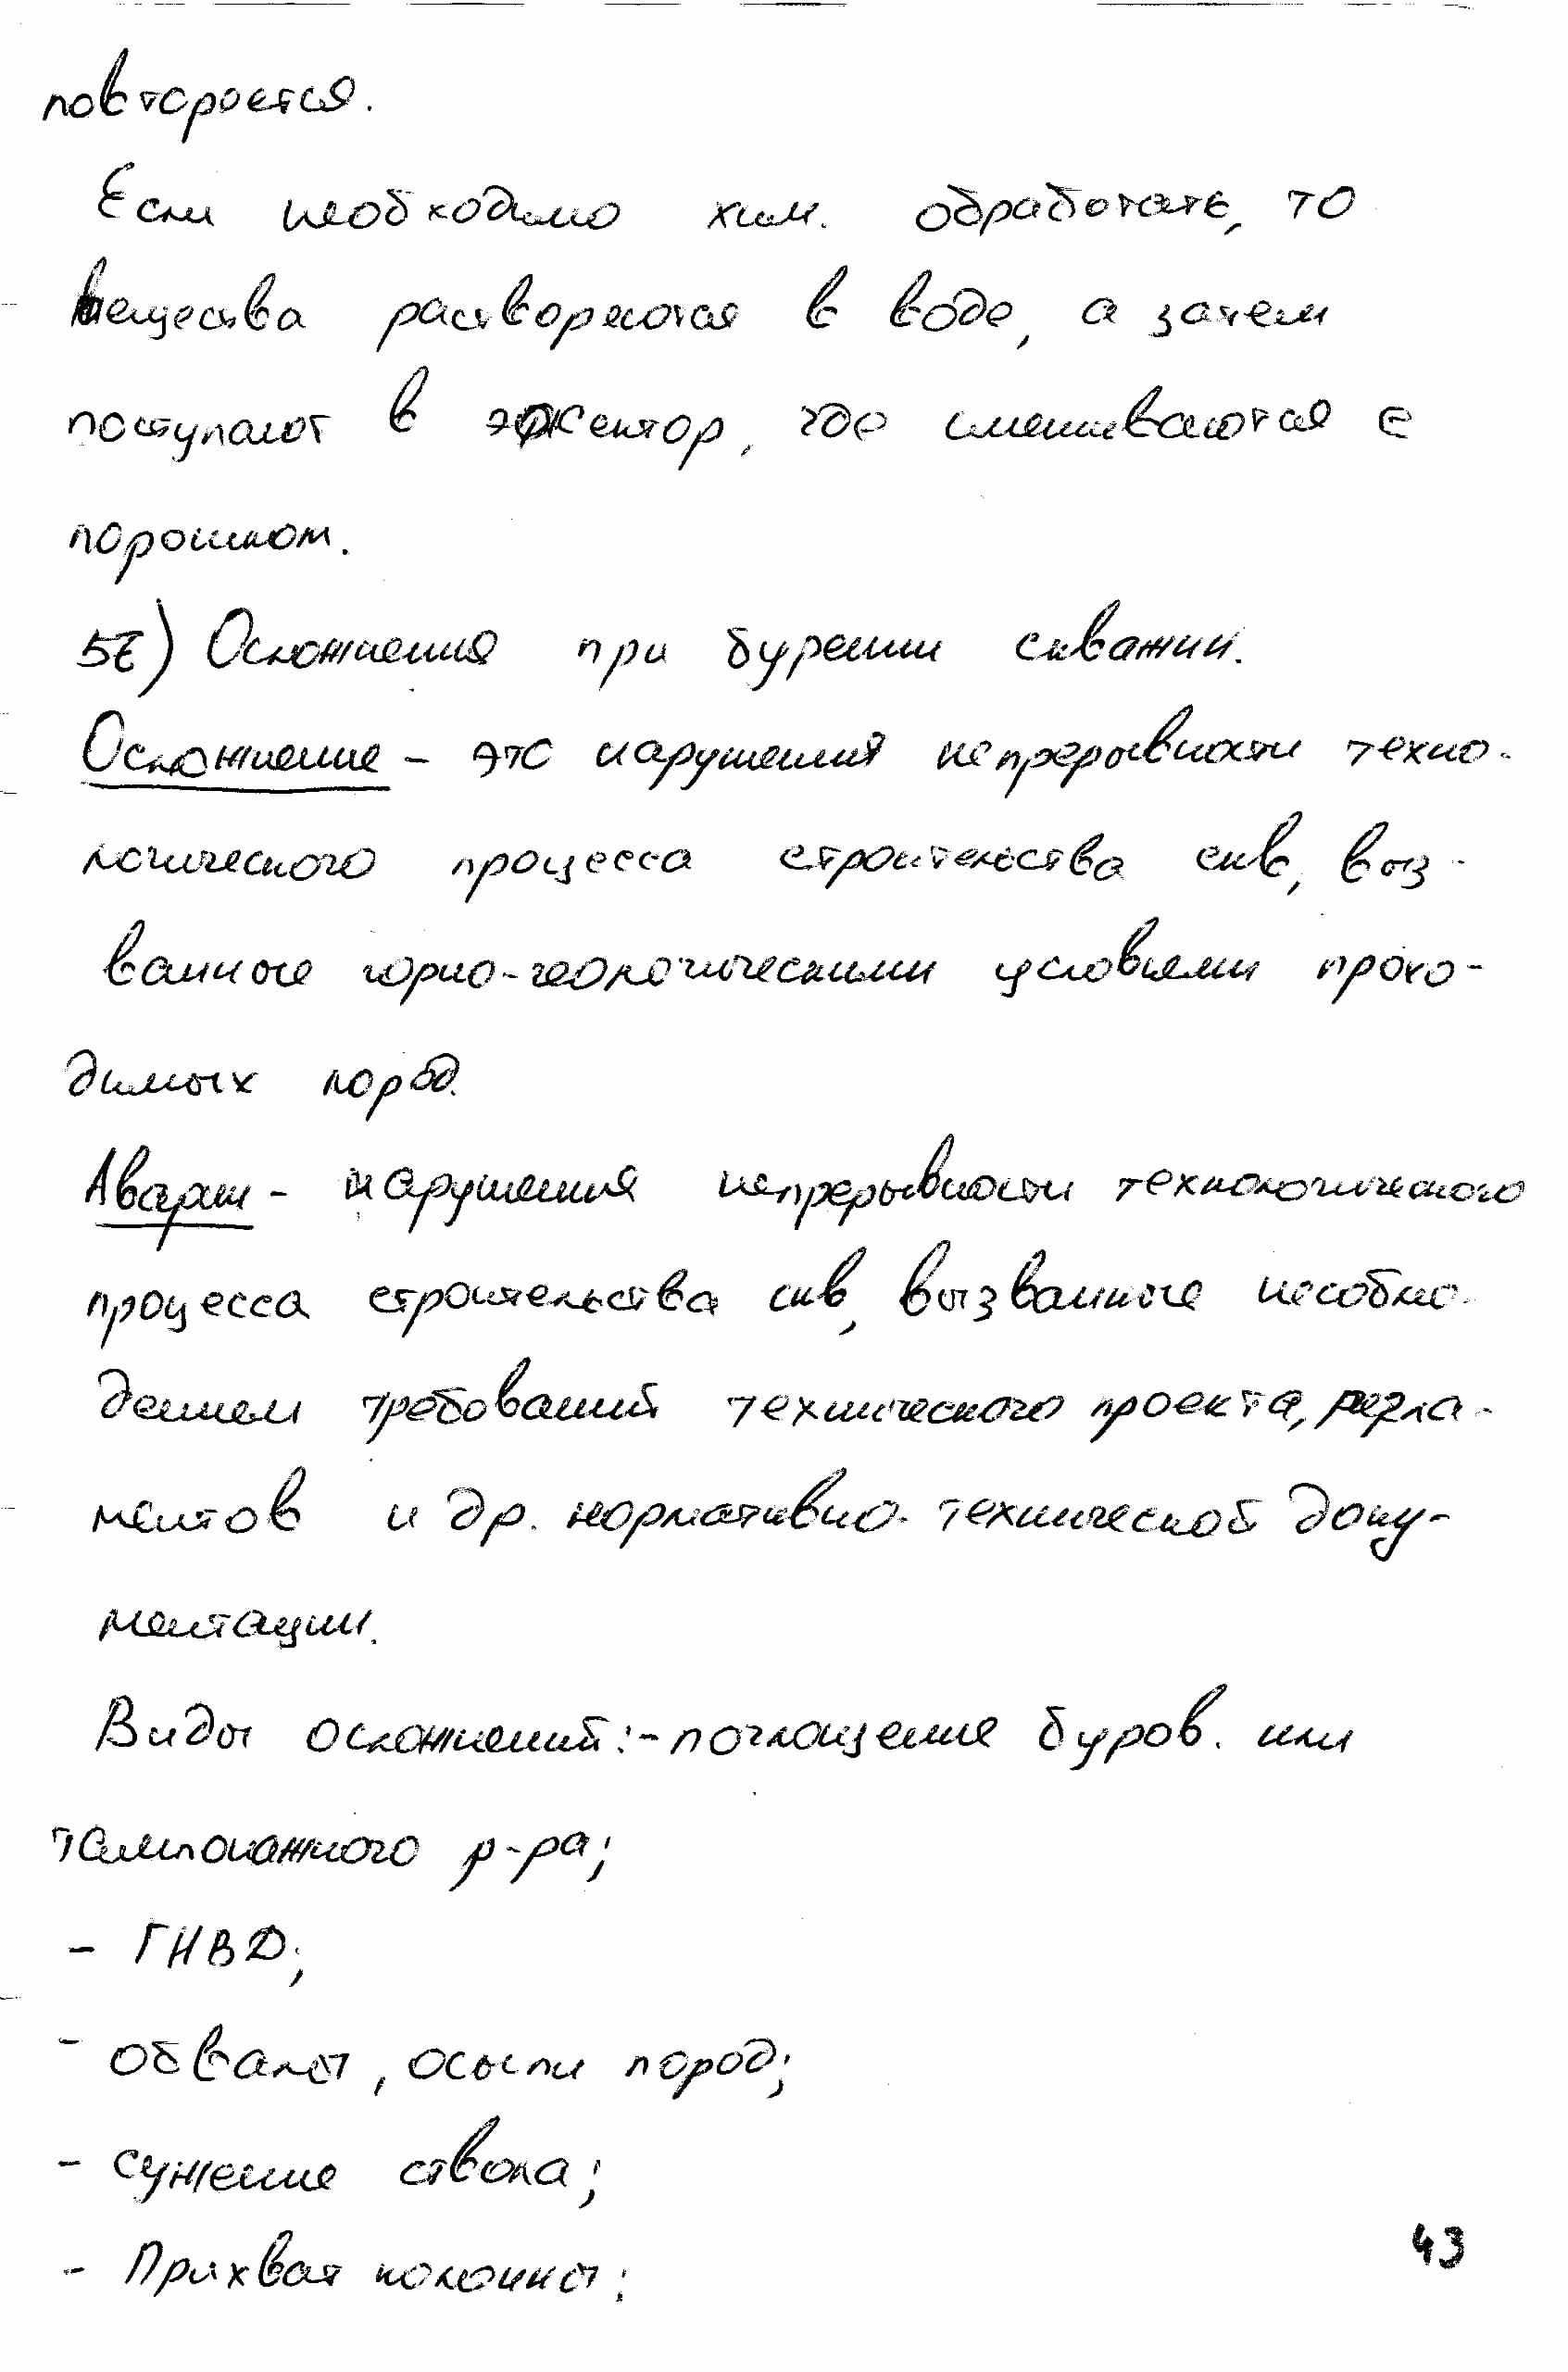 повтороется.
Если необходимо хим. обработать, то
вещества растворяются в воде, а затем
поступают в эжектор, где смешиваются с
порошком.
5) Осложнения при бурении скважин.
Осложнение - это нарушения непрерывности техно-
логического процесса строительства скв, выз-
ванные горно-геологическими условиями прохо-
димых пород.
Аварии - нарушения непрерывности технологического
процесса строительства скв, вызванные несоблю-
дением требований технического проекта, регла-
ментов и др. нормативно-технической доку-
ментации.
Виды осложнений:- поглощение буров. или
тампонажного р-ра;
- ГНВД;
- обвалы, осыпи пород;
- сужение ствола;
- Прихват колонны;
43